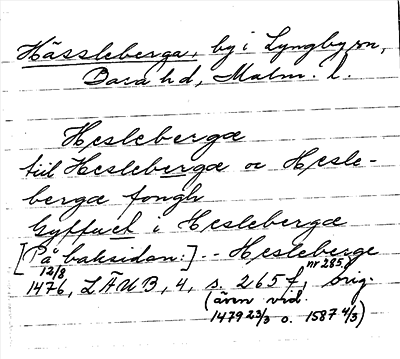 Hässleberga, by i Lyngby sn,
Bara hd, Malm. l.
Heslebergæ
tiil Heslebergæ oc Hesle-
bergæ fongh
Gyffuet i Heslebergæ
[På baksidan:] -- Heslebergæ
12/8 1476, LÄUB, 4, s. 265 f, nr 285, orig.
(även vid.
1479 23/3 o. 1587 4/3)